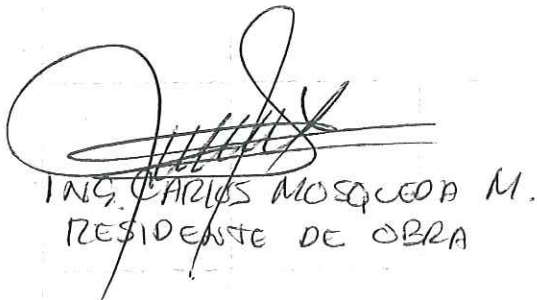 ING. CARLOS MOSQUEDA M.
RESIDENTE DE OBRA